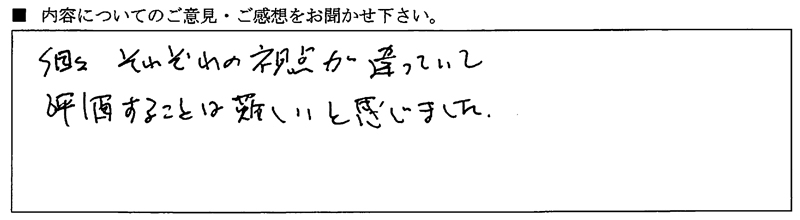 ■ 内容についてのご意見・ご感想をお聞かせ下さい。
個々 それぞれの視点が違っていて
評価することは難しいと感じました.